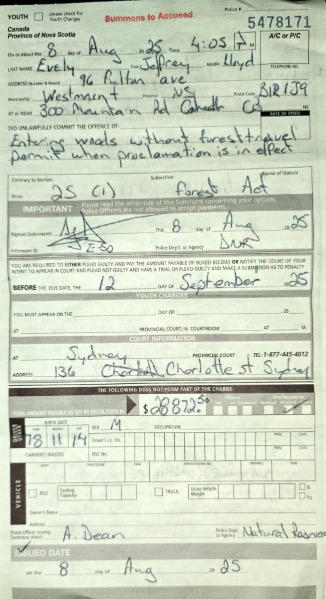 Police #
YOUTH please check for Youth Charges
Summons to Accused
5478171
Canada
Province of Nova Scotia
On or about the 8 day of Aug 20 25 Time 4:05 M
A/C or P/C
LAST NAME Evely First Jeffrey Middle Lloyd
TELEPHONE NO.
ADDRESS 96 Fulton ave
Municipality Westmount Province NS Postal Code B1R 1J9
AT or NEAR 300 Mountain Rd
RATE OF SPEED
DID UNLAWFULLY COMMIT THE OFFENCE OF:
Entering woods without forest travel
permit when proclamation is in effect
Contrary to Section Subsection Name of Statute
(Print) 25 (1) Forest Act
IMPORTANT Please read the other side of this Summons concerning your options.
Police Officers are not allowed to accept payments.
Signed (Informant) This 8 day of Aug 20 25
Informant ID Police Dept. or Agency DNR
YOU ARE REQUIRED TO EITHER PLEAD GUILTY AND PAY THE AMOUNT PAYABLE (IF NOTED BELOW) OR NOTIFY THE COURT OF YOUR
INTENT TO APPEAR IN COURT AND PLEAD NOT GUILTY AND HAVE A TRIAL OR PLEAD GUILTY AND MAKE A SUBMISSION AS TO PENALTY
BEFORE THE DUE DATE, THE 12 DAY OF September 20 25
YOUTH CHARGES
YOU MUST APPEAR ON THE DAY OF 20
AT PROVINCIAL COURT, IN COURTROOM AT M
COURT INFORMATION
AT Sydney PROVINCIAL COURT TEL: 1-877-445-4012
ADDRESS 136 Charlotte st Sydney
THE FOLLOWING DOES NOT FORM PART OF THE CHARGE
TOTAL AMOUNT PAYABLE AS SET BY REGULATION IS $28872.50
BIRTH DATE SEX M OCCUPATION
78 11 14 Driver's Lic. No.
CARRIER'S MASTER NSC No.
VEHICLE
BUS Seating Capacity TRUCK Gross Vehicle Weight kg lb
Owner's Name
Address
Peace Officer issuing Summons (Print) A. Dean Police Dept. or Agency Natural Resources
ISSUED DATE
on the 8 day of Aug 20 25